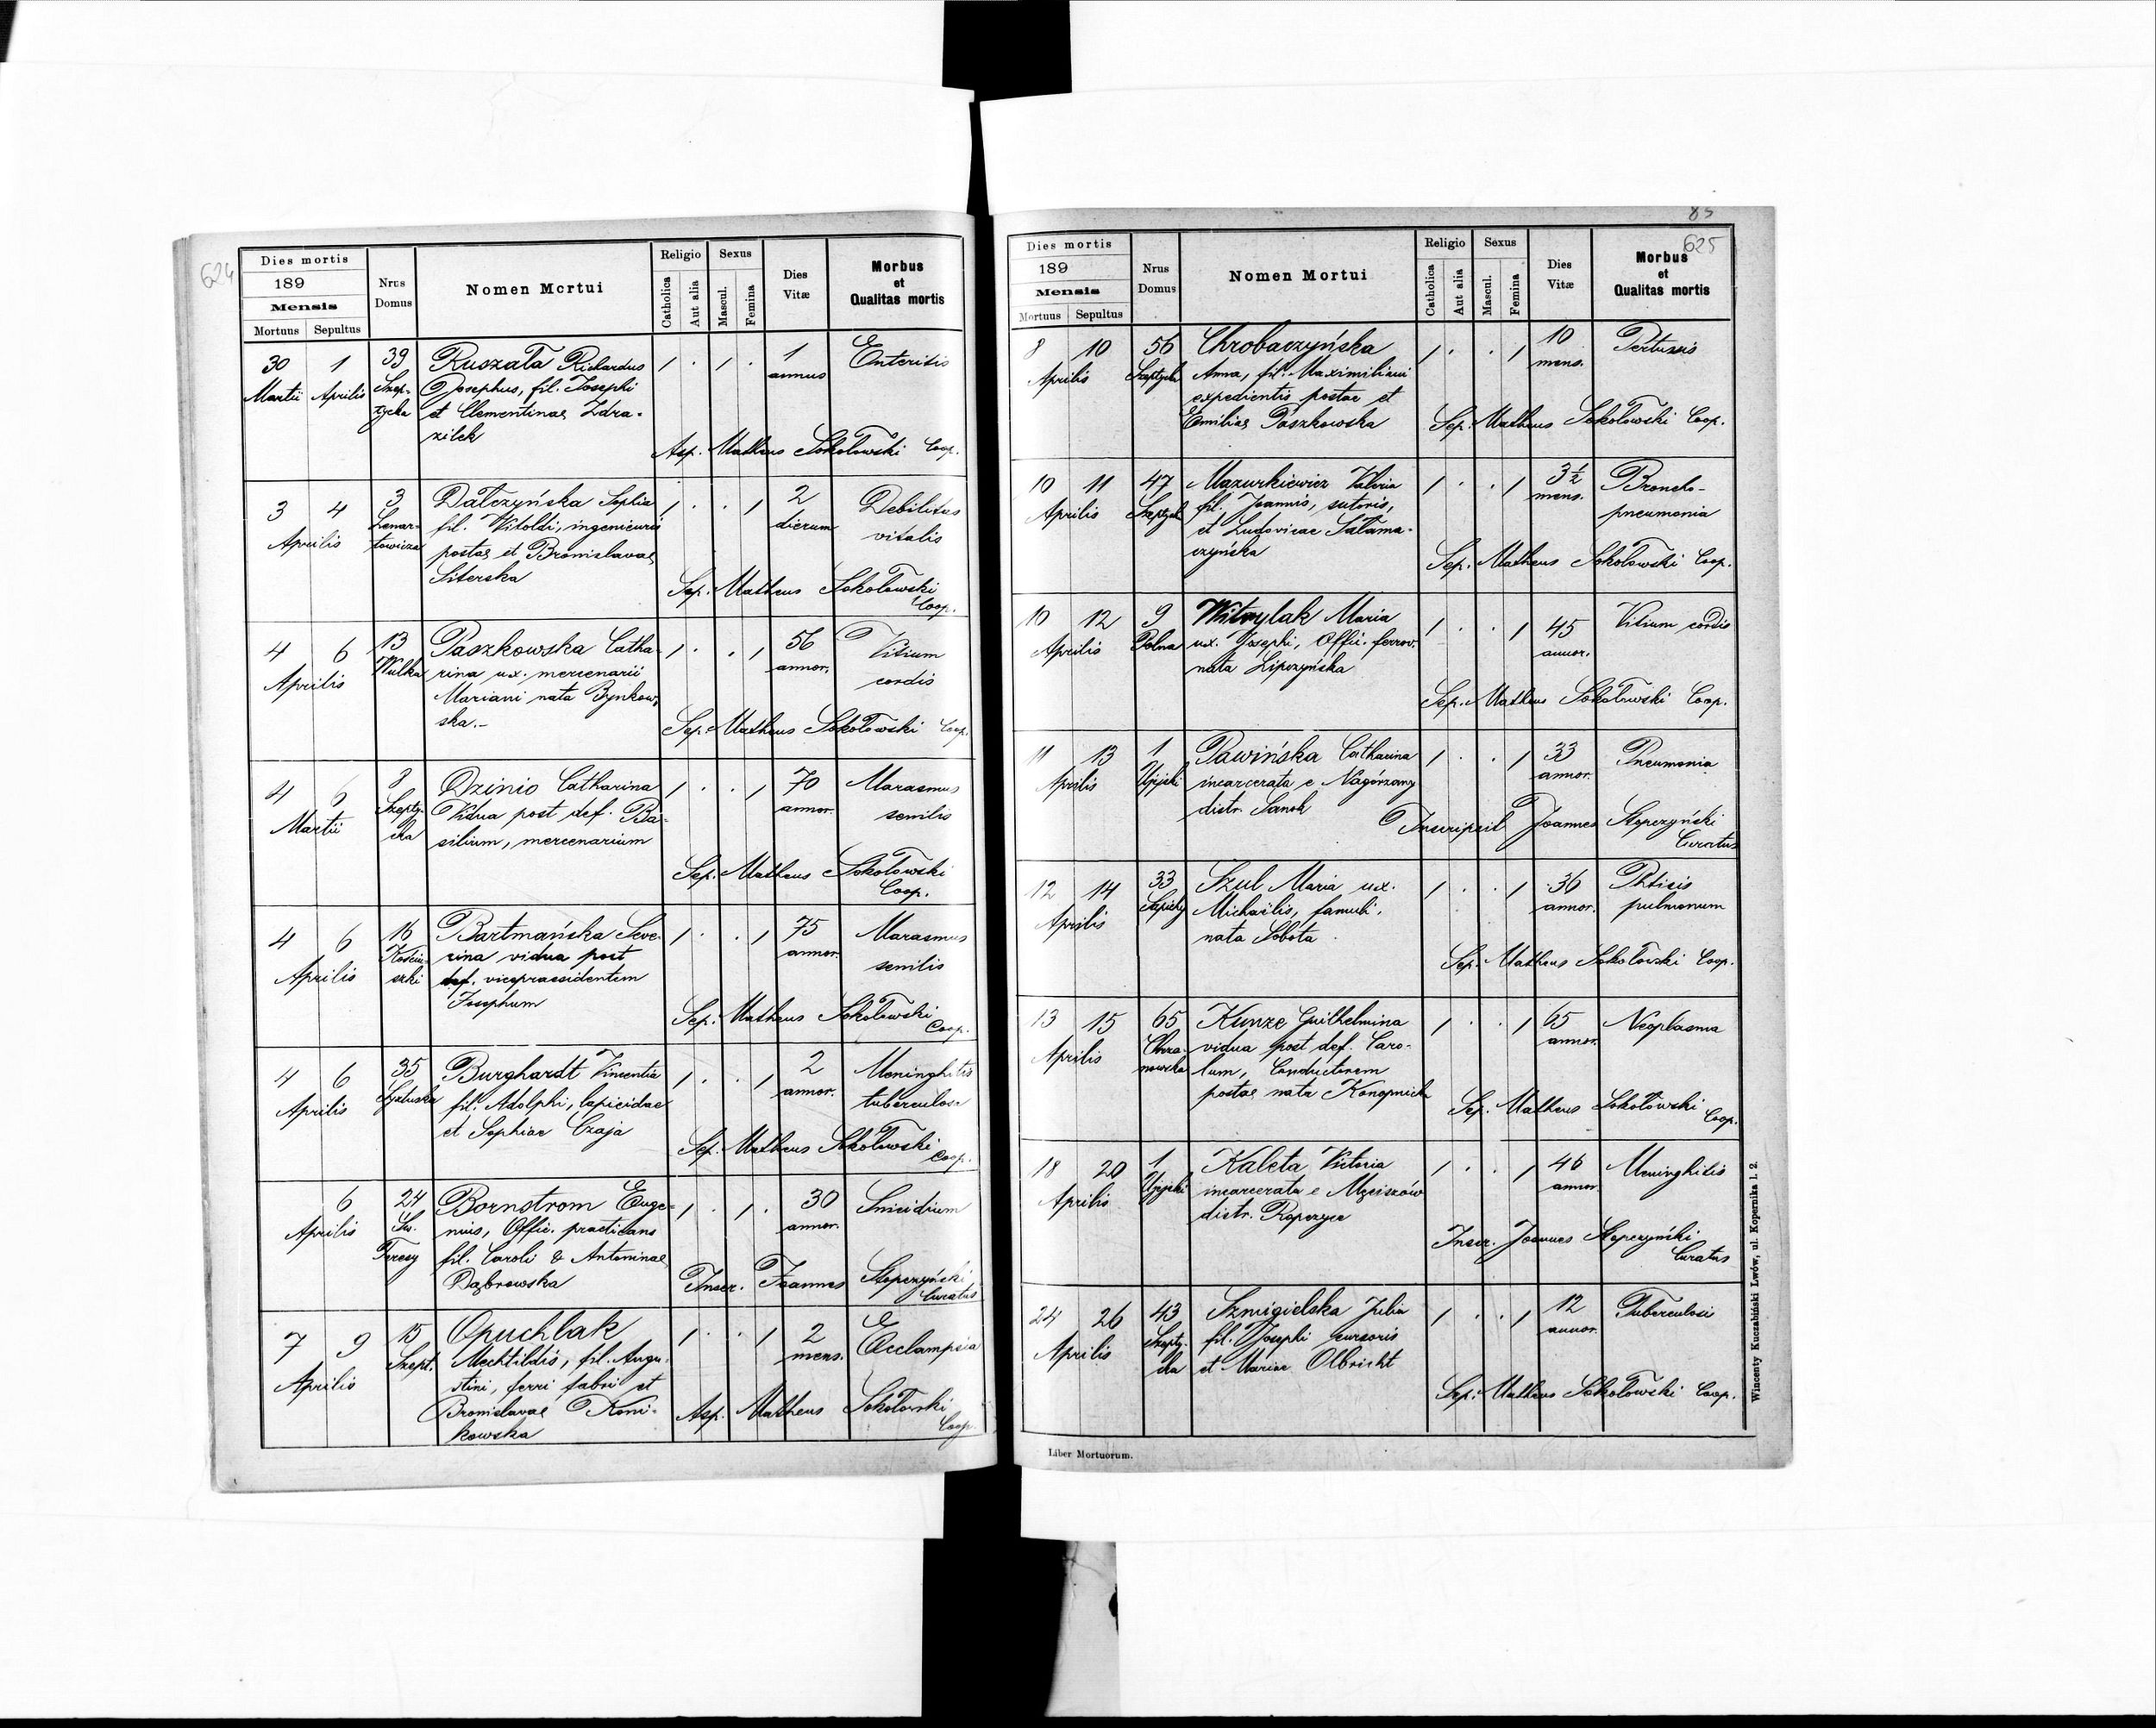 624
Dies mortis
189
Mensis
Mortuus Sepultus
Nrus Domus
Nomen Mortui
Religio
Catholica
Aut alia
Sexus
Mascul.
Femina
Dies Vitæ
Morbus et Qualitas mortis
30 1 39 Ruszała Richardus 1 . 1 . 1 Enteritis
Martii Aprilis Szep- Josephus, fil. Josephi annus
tycka et Clementinae Zdra-
zilek
Asp. Matheus Sokołowski Coop.
3 4 3 Dałczyńska Sophia 1 . . 1 2 Debilitas
Aprilis Lenar- fil. Witoldi, ingenieurii dierum vitalis
towicza postae et Bronislavae
Siterska
Sep. Matheus Sokołowski
Coop.
4 6 13 Paszkowska Catha- 1 . . 1 56 Vitium
Aprilis Wulka rina ux. mercenarii annor. cordis
Mariani nata Bynkow-
ska.-
Sep. Matheus Sokołowski Coop.
4 6 8 Dzinio Catharina 1 . . 1 70 Marasmus
Martii Szepty- Vidua post def. Ba- annor. senilis
cka silium, mercenarium
Sep. Matheus Sokołowski
Coop.
4 6 16 Bartmańska Seve- 1 . . 1 75 Marasmus
Aprilis Kościu- rina vidua post annor. senilis
szki def. vicepraesidentem
Josephum
Sep. Matheus Sokołowski
Coop.
4 6 35 Burghardt Vincentia 1 . . 1 2 Meninghitis
Aprilis fil. Adolphi, lapicidae annor. tuberculosa
et Sophiae Czaja
Sep. Matheus Sokołowski
Coop.
6 24 Bornstrom Euge- 1 . 1 . 30 Suicidium
Aprilis Św. nius, Offic. practicans annor.
Teresy fil. Caroli & Antoninae
Dąbrowska
Inscr. Joannes Stopczyński
Curatus
7 9 15 Opuchlak 1 . . 1 2 Ecclampsia
Aprilis Szept. Mechtildis, fil. Augu- mens.
stini, ferri fabri et
Bronislavae Koni-
kowska
Asp. Matheus Sokołowski
Coop.
85
625
Dies mortis
189
Mensis
Mortuus Sepultus
Nrus Domus
Nomen Mortui
Religio
Catholica
Aut alia
Sexus
Mascul.
Femina
Dies Vitæ
Morbus et Qualitas mortis
8 10 56 Chrobaczyńska 1 . . 1 10 Pertussis
Aprilis Szeptycka Anna, fil. Maximiliani mens.
expedientis postae et
Emiliae Paszkowska
Sep. Matheus Sokołowski Coop.
10 11 47 Mazurkiewicz Valeria 1 . . 1 3½ Broncho-
Aprilis Szeptycka fil. Joannis, sutoris, mens. pneumonia
et Ludovicae Sałama-
czyńska
Sep. Matheus Sokołowski Coop.
10 12 9 Witwylak Maria 1 . . 1 45 Vitium cordis
Aprilis Polna ux. Josephi, Offic. ferrov. annor.
nata Lipczyńska
Sep. Matheus Sokołowski Coop.
11 13 1 Pawińska Catharina 1 . . 1 33 Pneumonia
Aprilis Ujejski incarcerata e Nagórzany annor.
distr. Sanok
Inscripsit Joannes Stopczyński
Curatus
12 14 33 Szul Maria ux. 1 . . 1 36 Phtisis
Aprilis Sapiehy Michaëlis, famuli, annor. pulmonum
nata Sobota
Sep. Matheus Sokołowski Coop.
13 15 65 Kunze Guilhelmina 1 . . 1 65 Neoplasma
Aprilis Chrza- vidua post def. Caro- annor.
nowska lum, Conductorem
postae nata Konopnick
Sep. Matheus Sokołowski
Coop.
18 20 1 Kaleta Victoria 1 . . 1 46 Meninghitis
Aprilis Ujejski incarcerata e Męciszów annor.
distr. Ropczyce
Inscr. Joannes Stopczyński
Curatus
24 26 43 Szmigielska Julia 1 . . 1 12 Tuberculosis
Aprilis Szepty- fil. Josephi cursoris annor.
cka et Mariae Olbricht
Sep. Matheus Sokołowski Coop.
Liber Mortuorum.
Wincenty Kuczabiński Lwów, ul. Kopernika l. 2.